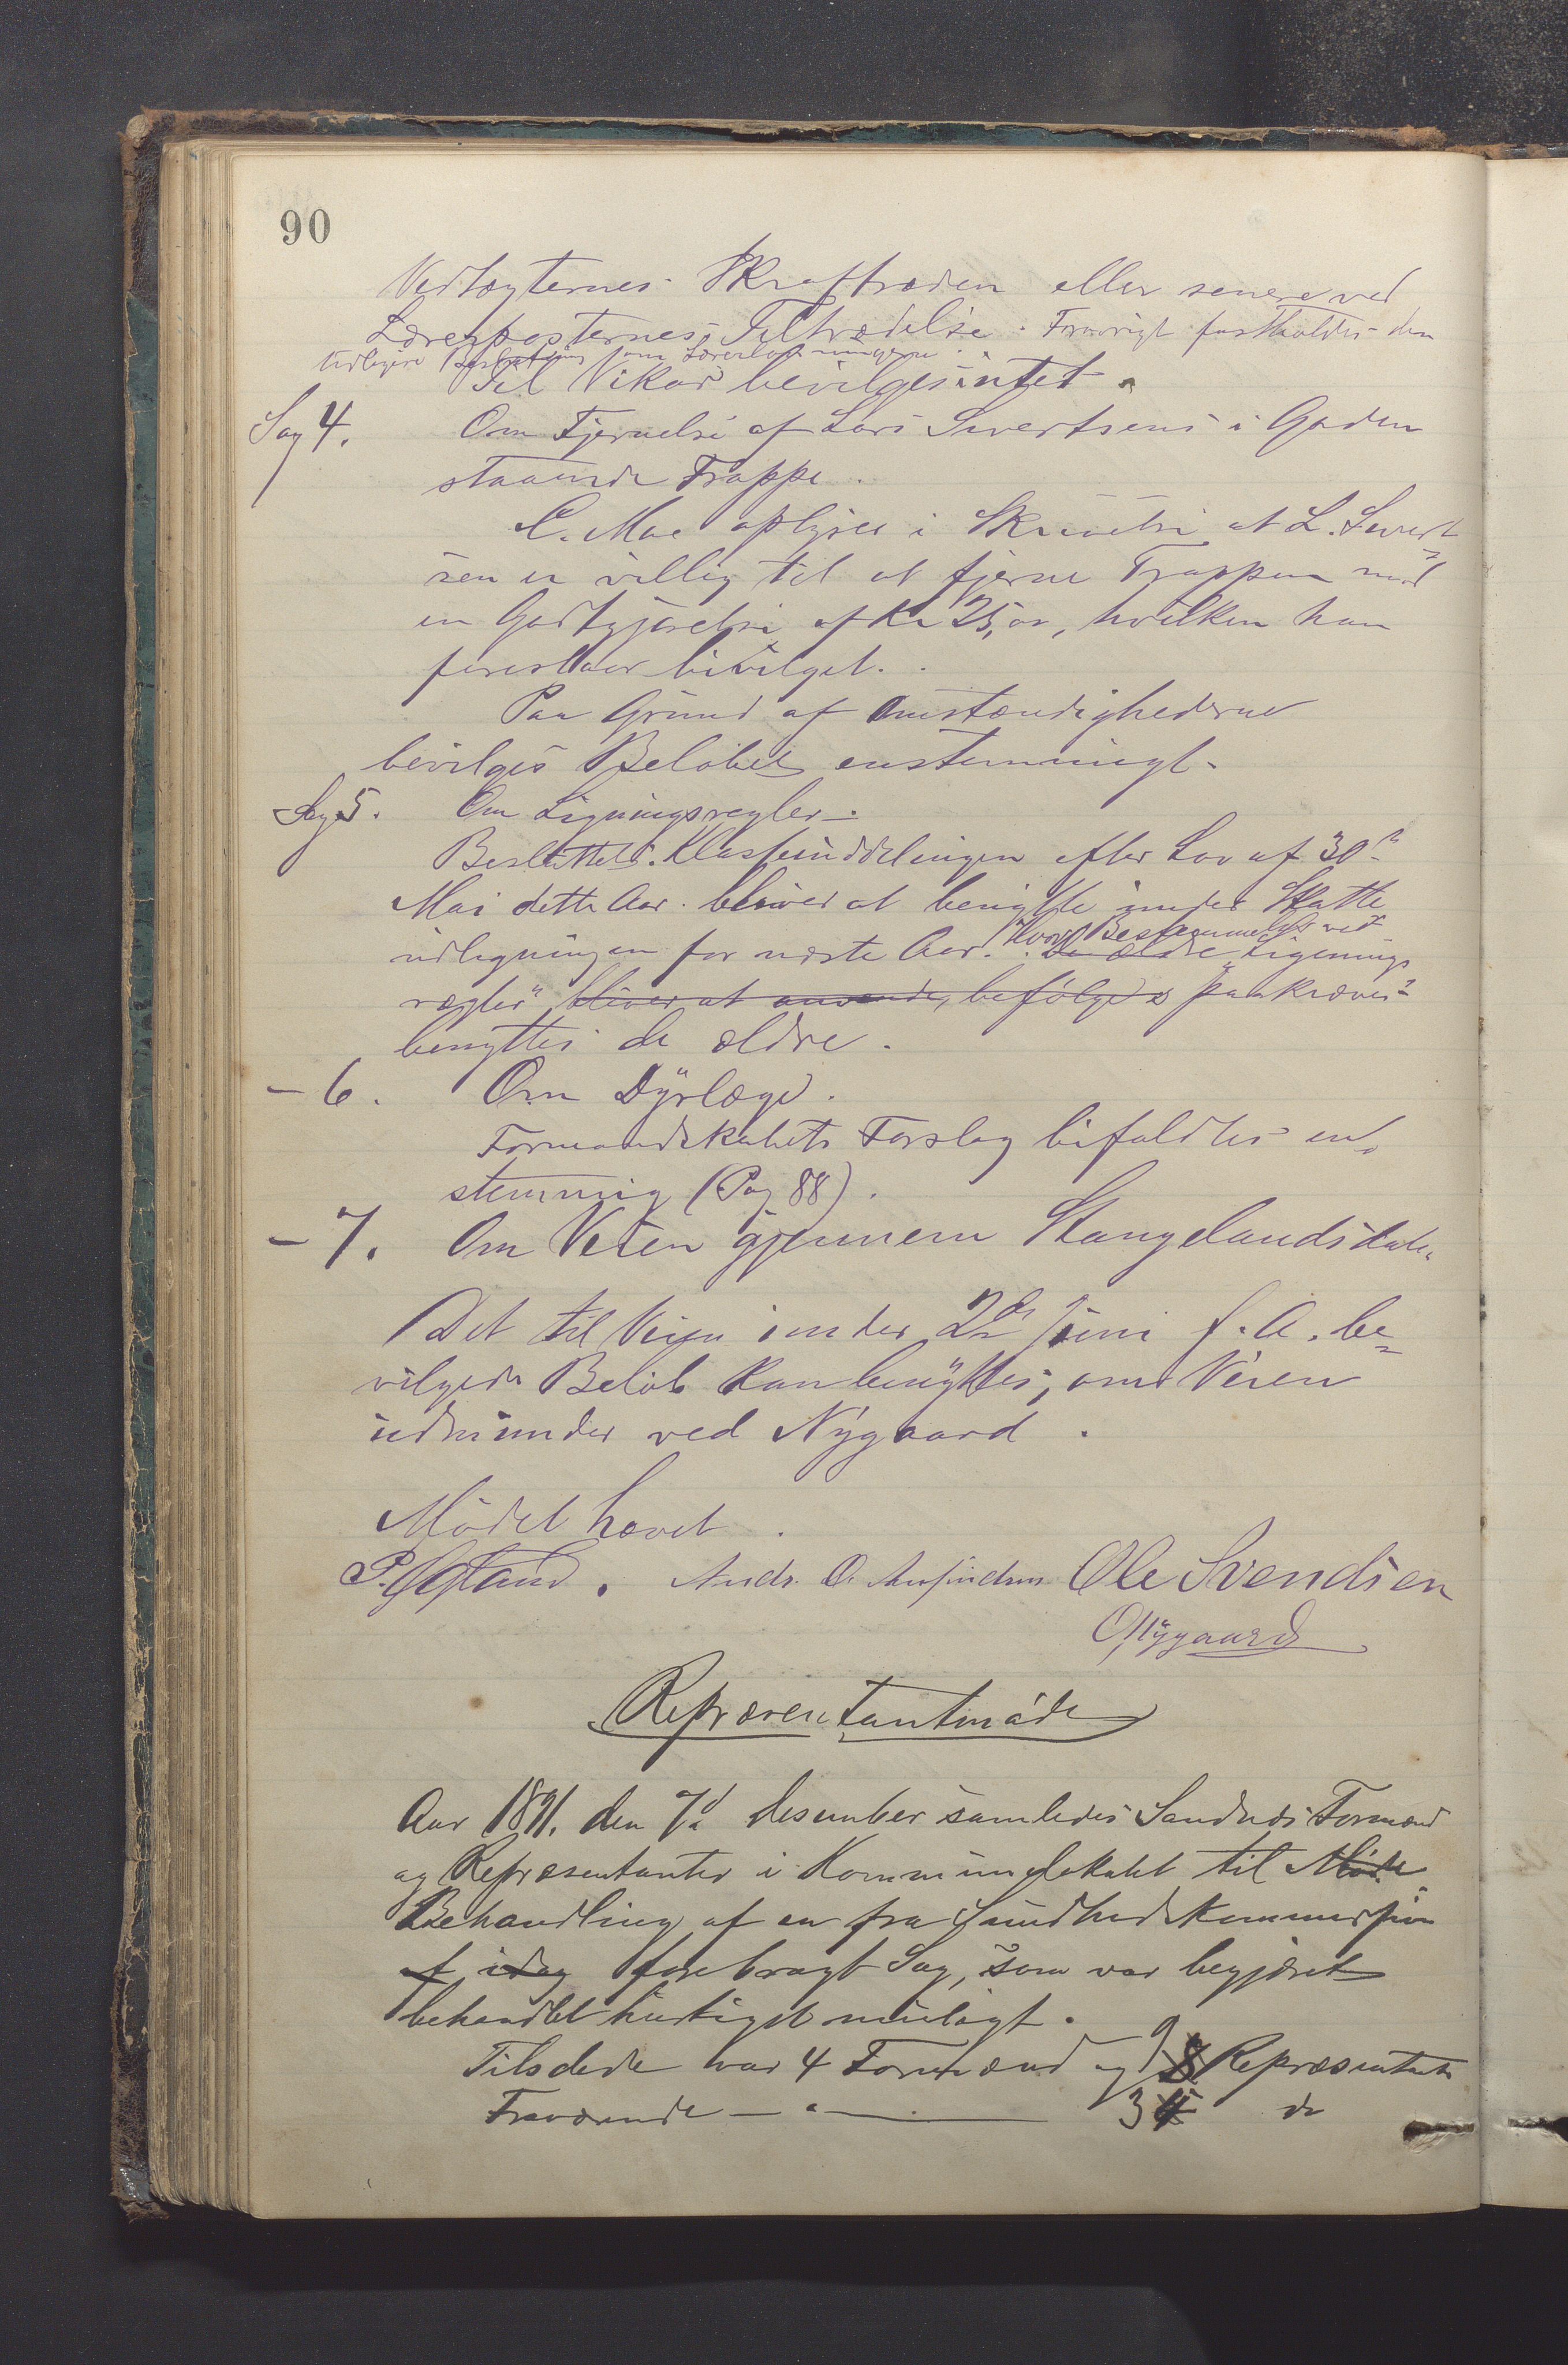 90
Vedtægternes Ikrafttræden eller senere ved
Lærerposternes Tiltrædelse. Forøvrigt fastholdes den
tidligere Beslutning om Lærerlønningerne.
Til Vikar bevilges intet.
Sag 4. Om Fjernelse af Lars Sivertsens i Gaden
staaende Trappe.
C. Moe oplyser i Skrivelse at L. Sivert
sen er villig til at fjerne Trappen mod
en Godtgjørelse af Kr 25,00, hvilken han
foreslaar bevilget.
Paa Grund af Omstændighederne
bevilges Beløbet enstemmigt.
Sag 5. Om Ligningsregler.
Besluttet: Klasseinddelingen efter Lov af 30te
Mai dette Aar bliver at benytte under Skatte
udligningen for næste Aar. Hvor Bestemmelse ved
De ældre Ligenings
regler bliver at anvende, befølges paakræves
benyttes de ældre.
- 6. Om Dyrlæge.
Formandskabets Forslag bifaldtes en-
stemmig (Pag 88).
- 7. Om Veien gjennem Stangelandsdalen
Det til Veien under 2den Juni f. A. be-
vilgede Beløb kan benyttes, om Veien
udmunder ved Nygaard.
Mødet hævet.
P. Ogland. Andr. O. Ole Svendsen
O Nygaard
Repræsentantmøde
Aar 1891. den 7de desember samledes Sandnes Formænd
og Repræsentanter i Kommunelokalet til Møde
Behandling af en fra Sundhedskommission
af idag forebragt Sag, som var begjæret
behandlet hurtigst muligt.
Tilstede var 4 Formænd og 9 8 Repræsentanter
Fraværende — " — 3 4 do